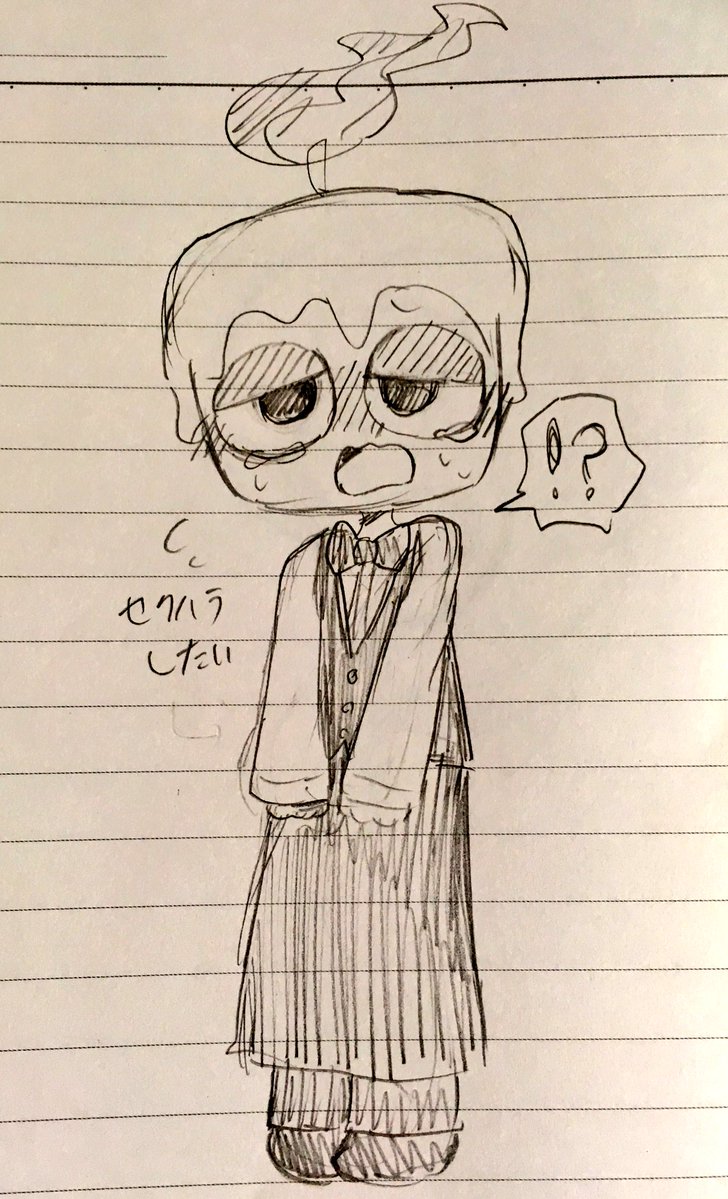 セクハラ
したい
!?